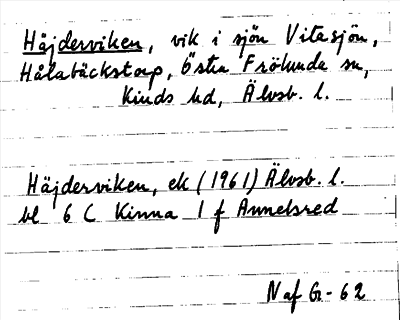 Häjderviken, vik i sjön Vitasjön,
Hålabäckstorp, Östra Frölunda sn,
Kinds hd, Älvsb. l.
Häjderviken, ek (1961) Älvsb. l.
bl 6 C Kinna 1 f Annelsred
Naf G-62